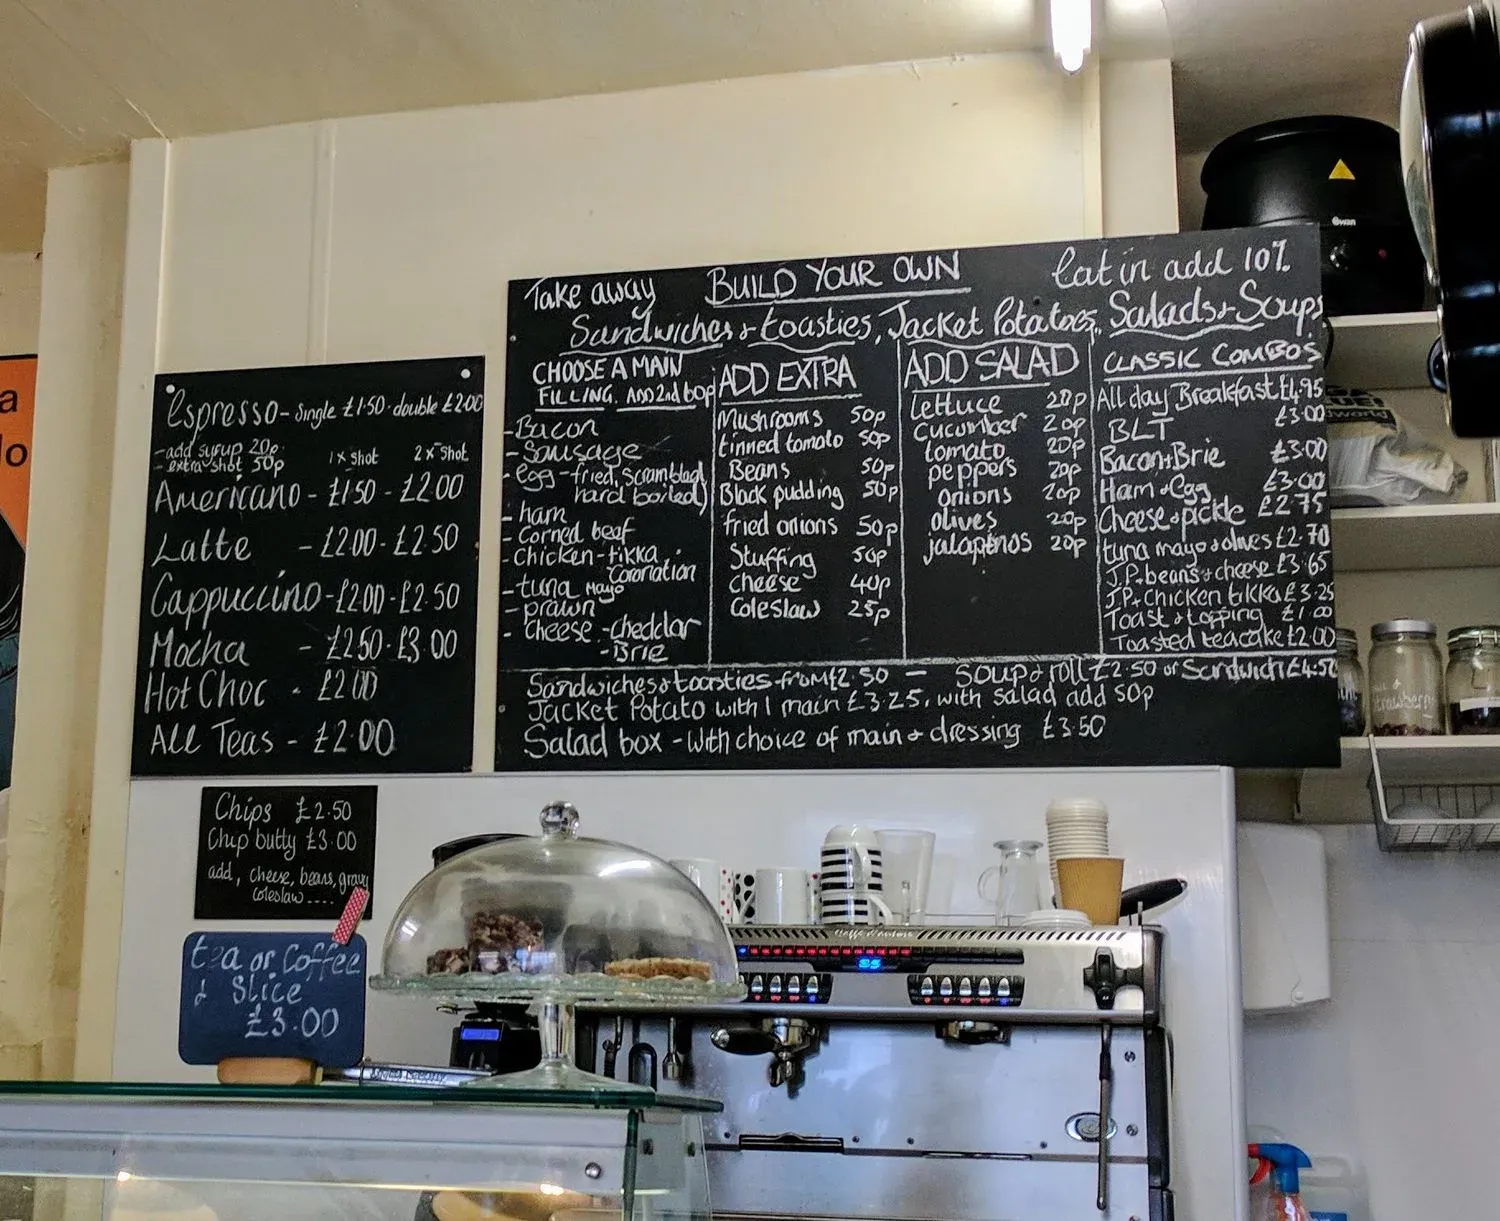 Espresso - Single £1.50 - double £2.00
- add syrup 20p
- extra shot 50p
1 x shot 2 x shot
Americano - £1.50 - £2.00
Latte - £2.00 - £2.50
Cappuccino - £2.00 - £2.50
Mocha - £2.50 - £3.00
Hot Choc - £2.00
All Teas - £2.00
Chips £2.50
Chip butty £3.00
add, cheese, beans, gravy
coleslaw ....
tea or Coffee
& Slice
£3.00
Take away BUILD YOUR OWN Eat in add 10%
Sandwiches & toasties, Jacket Potatoes, Salads & Soups
CHOOSE A MAIN
FILLING, ADD 2nd 60p
- Bacon
- Sausage
- egg - fried, scrambled,
hard boiled)
- ham
- Corned beef
- Chicken - tikka
Coronation
- tuna mayo
- prawn
- Cheese - cheddar
- Brie
ADD EXTRA
Mushrooms 50p
tinned tomato 50p
Beans 50p
Black pudding 50p
fried onions 50p
Stuffing 50p
cheese 40p
Coleslaw 25p
ADD SALAD
Lettuce 20p
cucumber 20p
tomato 20p
peppers 20p
onions 20p
olives 20p
jalapenos 20p
CLASSIC COMBOS
All day Breakfast £4.95
BLT £3.00
Bacon + Brie £3.00
Ham & Egg £3.00
Cheese & pickle £2.75
tuna mayo & olives £2.70
J.P. beans & cheese £3.65
J.P. + Chicken tikka £3.25
Toast & topping £1.00
Toasted teacake £2.00
Sandwiches & toasties from £2.50 - Soup & roll £2.50 or Sandwich £4.50
Jacket Potato with 1 main £3.25, with salad add 50p
Salad box - with choice of main & dressing £3.50
Swan
a
lo
55